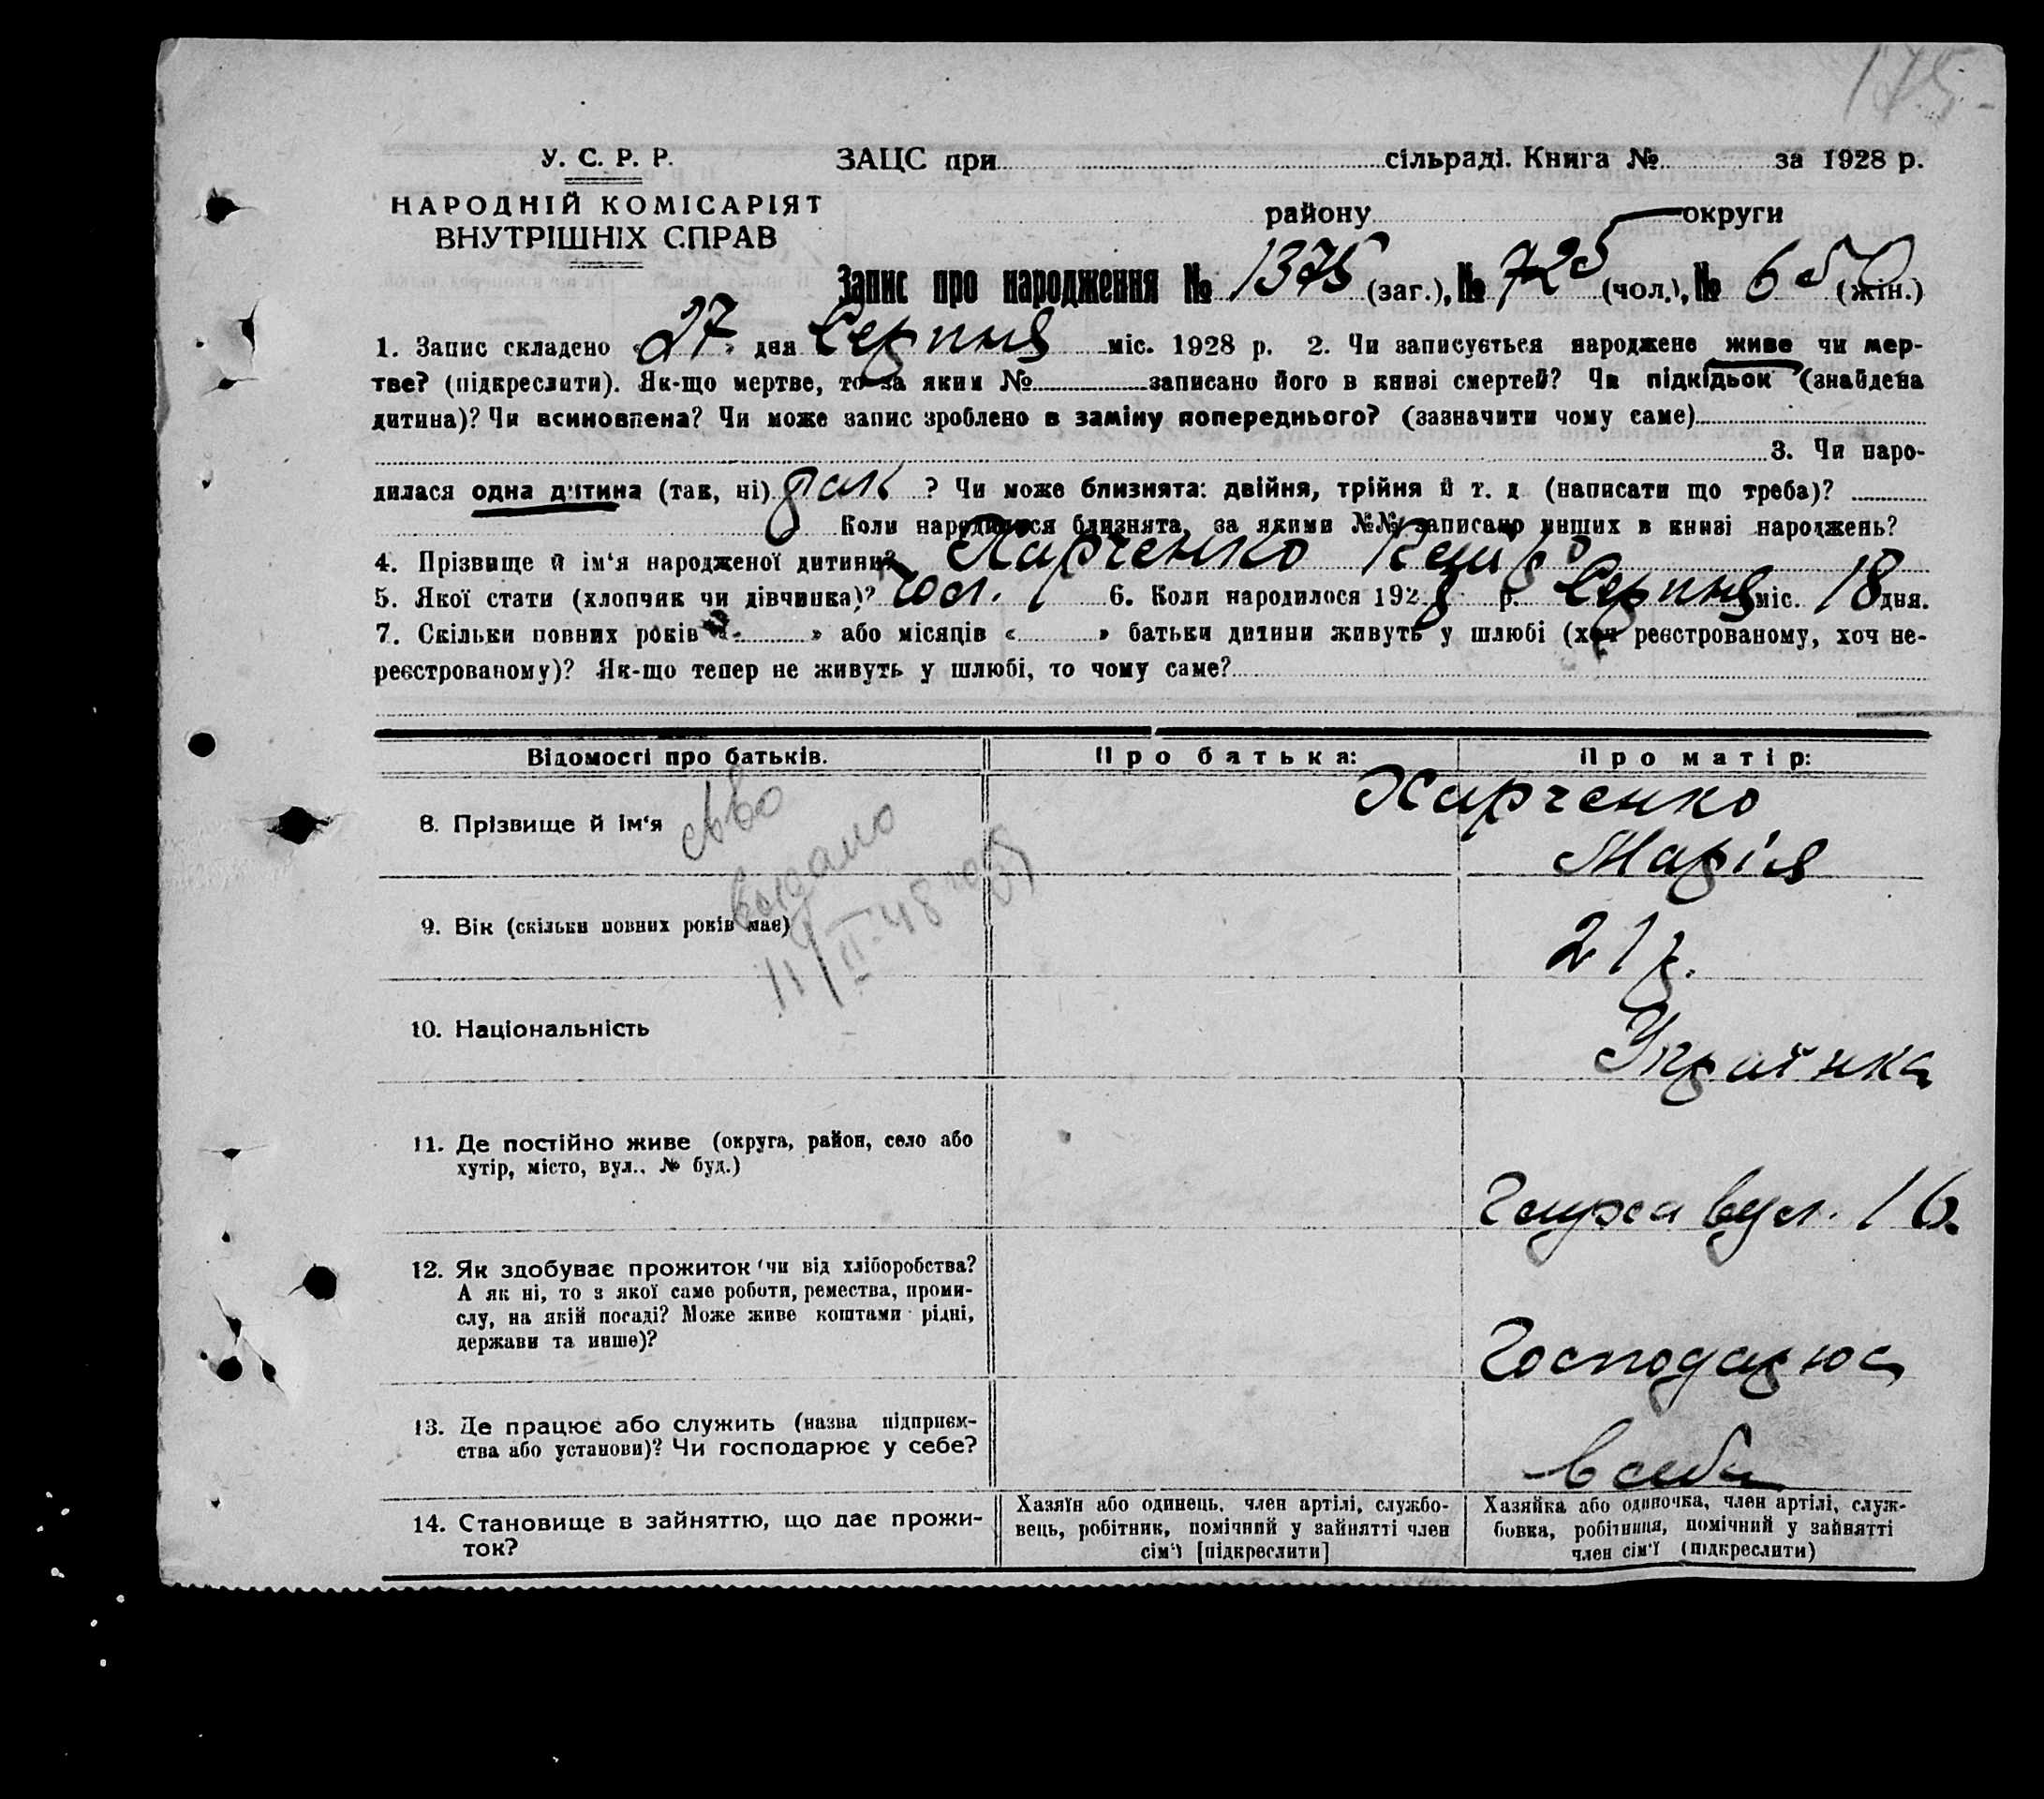 175
У. С. Р. Р.
ЗАЦС при сільраді. Книга № за 1928 р.
НАРОДНІЙ КОМІСАРІЯТ
ВНУТРІШНІХ СПРАВ
району округи
Запис про народження № 1375 (заг.), № 725 (чол.), № 650 (жін.)
1. Запис складено «27» дня Серпня міс. 1928 р. 2. Чи записується народжене живе чи мер-
тве? (підкреслити). Як-що мертве, то за яким № записано його в книзі смертей? Чи підкідьок (знайдена
дитина)? Чи всиновлена? Чи може запис зроблено в заміну попереднього? (зазначити чому саме)
3. Чи наро-
дилася одна дитина (так, ні) так ? Чи може близнята: двійня, трійня й т. д. (написати що треба)?
Коли народилися близнята, за якими №№ записано инших в книзі народжень?
4. Прізвище й ім'я народженої дитини? Харченко
5. Якої стати (хлопчик чи дівчинка)? чол. 6. Коли народилося 1928 р. Серпня міс. 18 дня.
7. Скільки повних років « » або місяців « » батьки дитини живуть у шлюбі (хоч реєстрованому, хоч не-
реєстрованому)? Як-що тепер не живуть у шлюбі, то чому саме?
Відомості про батьків.
Про батька:
Про матір:
8. Прізвище й ім'я
Харченко
Марія
сво
выдано
11/II-48
9. Вік (скільки повних років має)
21 р.
10. Національність
Українка
11. Де постійно живе (округа, район, село або
хутір, місто, вул., № буд.)
вул. 16
12. Як здобуває прожиток (чи від хліборобства?
А як ні, то з якої саме роботи, ремества, проми-
слу, на якій посаді? Може живе коштами рідні,
держави та инше)?
Господарює
13. Де працює або служить (назва підприєм-
ства або установи)? Чи господарює у себе?
в себе
14. Становище в зайняттю, що дає прожи-
ток?
Хазяїн або одинець, член артілі, службо-
вець, робітник, помічний у зайнятті член
сім'ї [підкреслити]
Хазяйка або одиночка, член артілі, служ-
бовка, робітниця, помічний у зайнятті
член сім'ї (підкреслити)